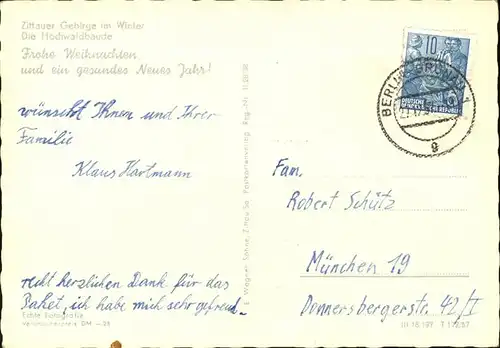 Zittauer Gebirge im Winter
Die Hochwaldbaude
Frohe Weihnachten
und ein gesundes Neues Jahr!
wünscht Ihnen und Ihrer
Familie
Klaus Hartmann
recht herzlichen Dank für das
Paket, ich habe mich sehr gefreut.
Echte Fotografie
DM
E. Wegner Söhne, Zittau Sa. Postkartenverlag
10
DEUTSCHE
BERLIN-GRÜNAU 1
g
Fam.
Robert Schütz
München 19
Donnersbergerstr. 42/I
III 18 197